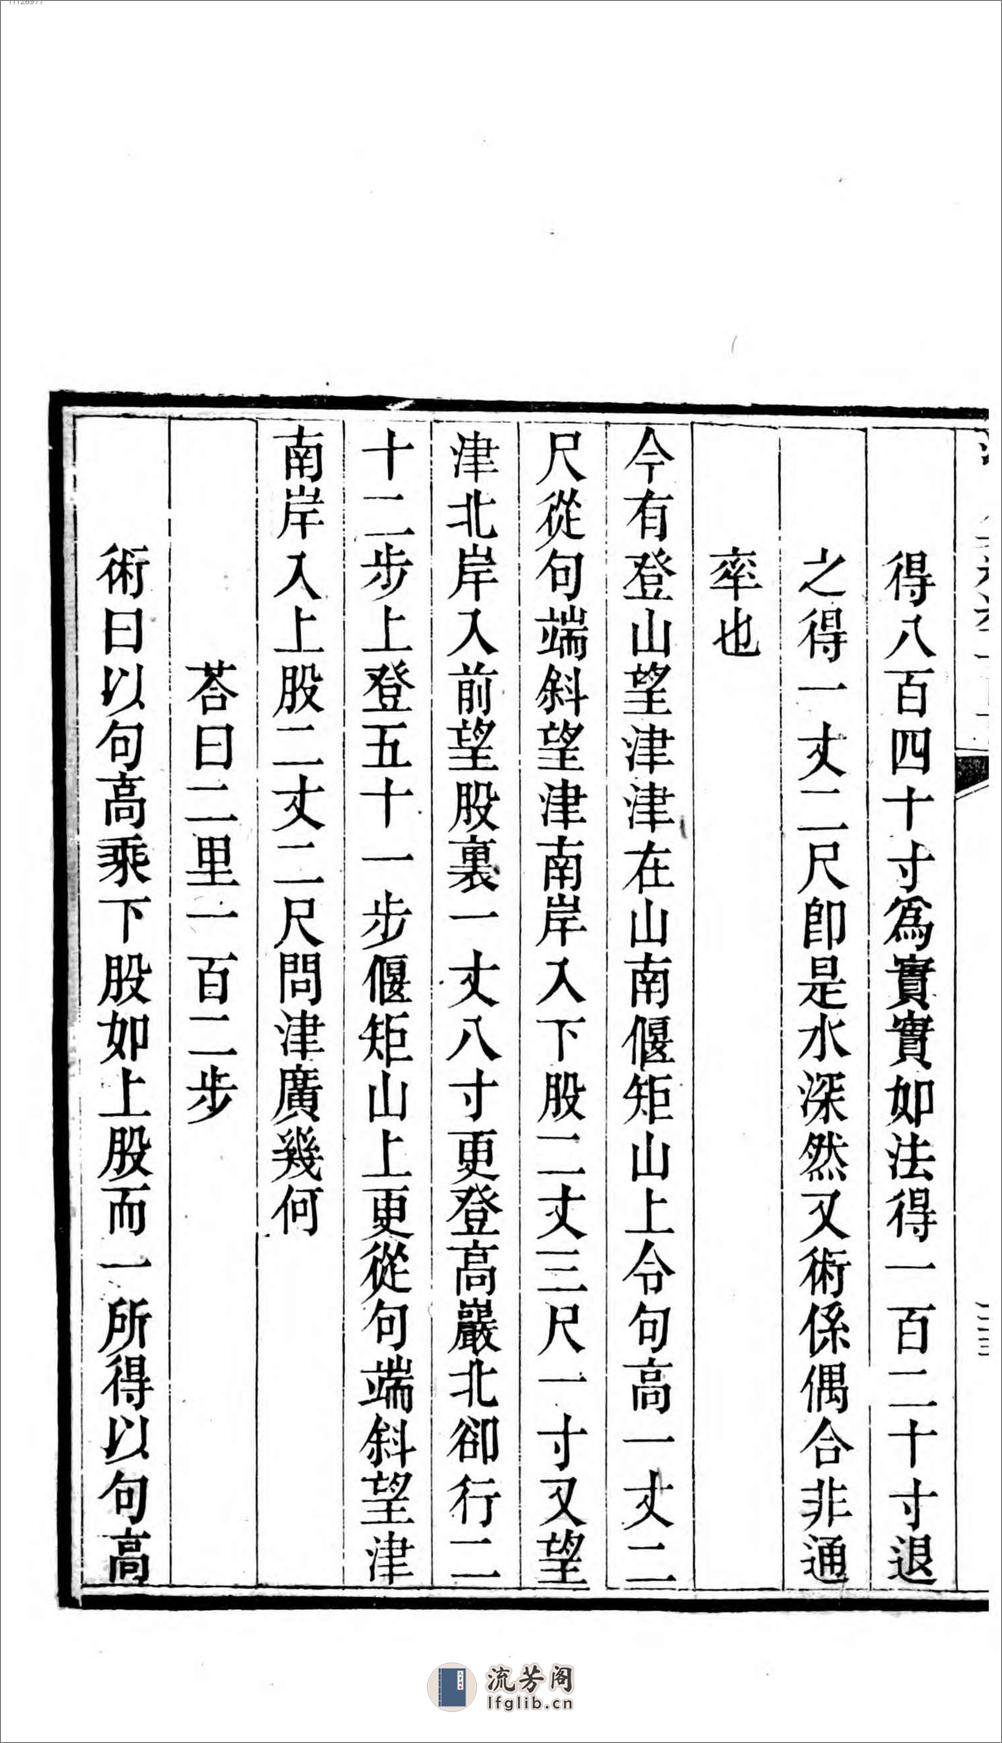 得八百四十寸爲實實如法得一百二十寸退
之得一丈二尺卽是水深然又術係偶合非通
率也
今有登山望津津在山南偃矩山上令句高一丈二
尺從句端斜望津南岸入下股二丈三尺一寸又望
津北岸入前望股裏一丈八寸更登高巖北卻行二
十二步上登五十一步偃矩山上更從句端斜望津
南岸入上股二丈二尺問津廣幾何
荅曰二里一百二步
術曰以句高乘下股如上股而一所得以句高
流芳阁
lfglib.cn